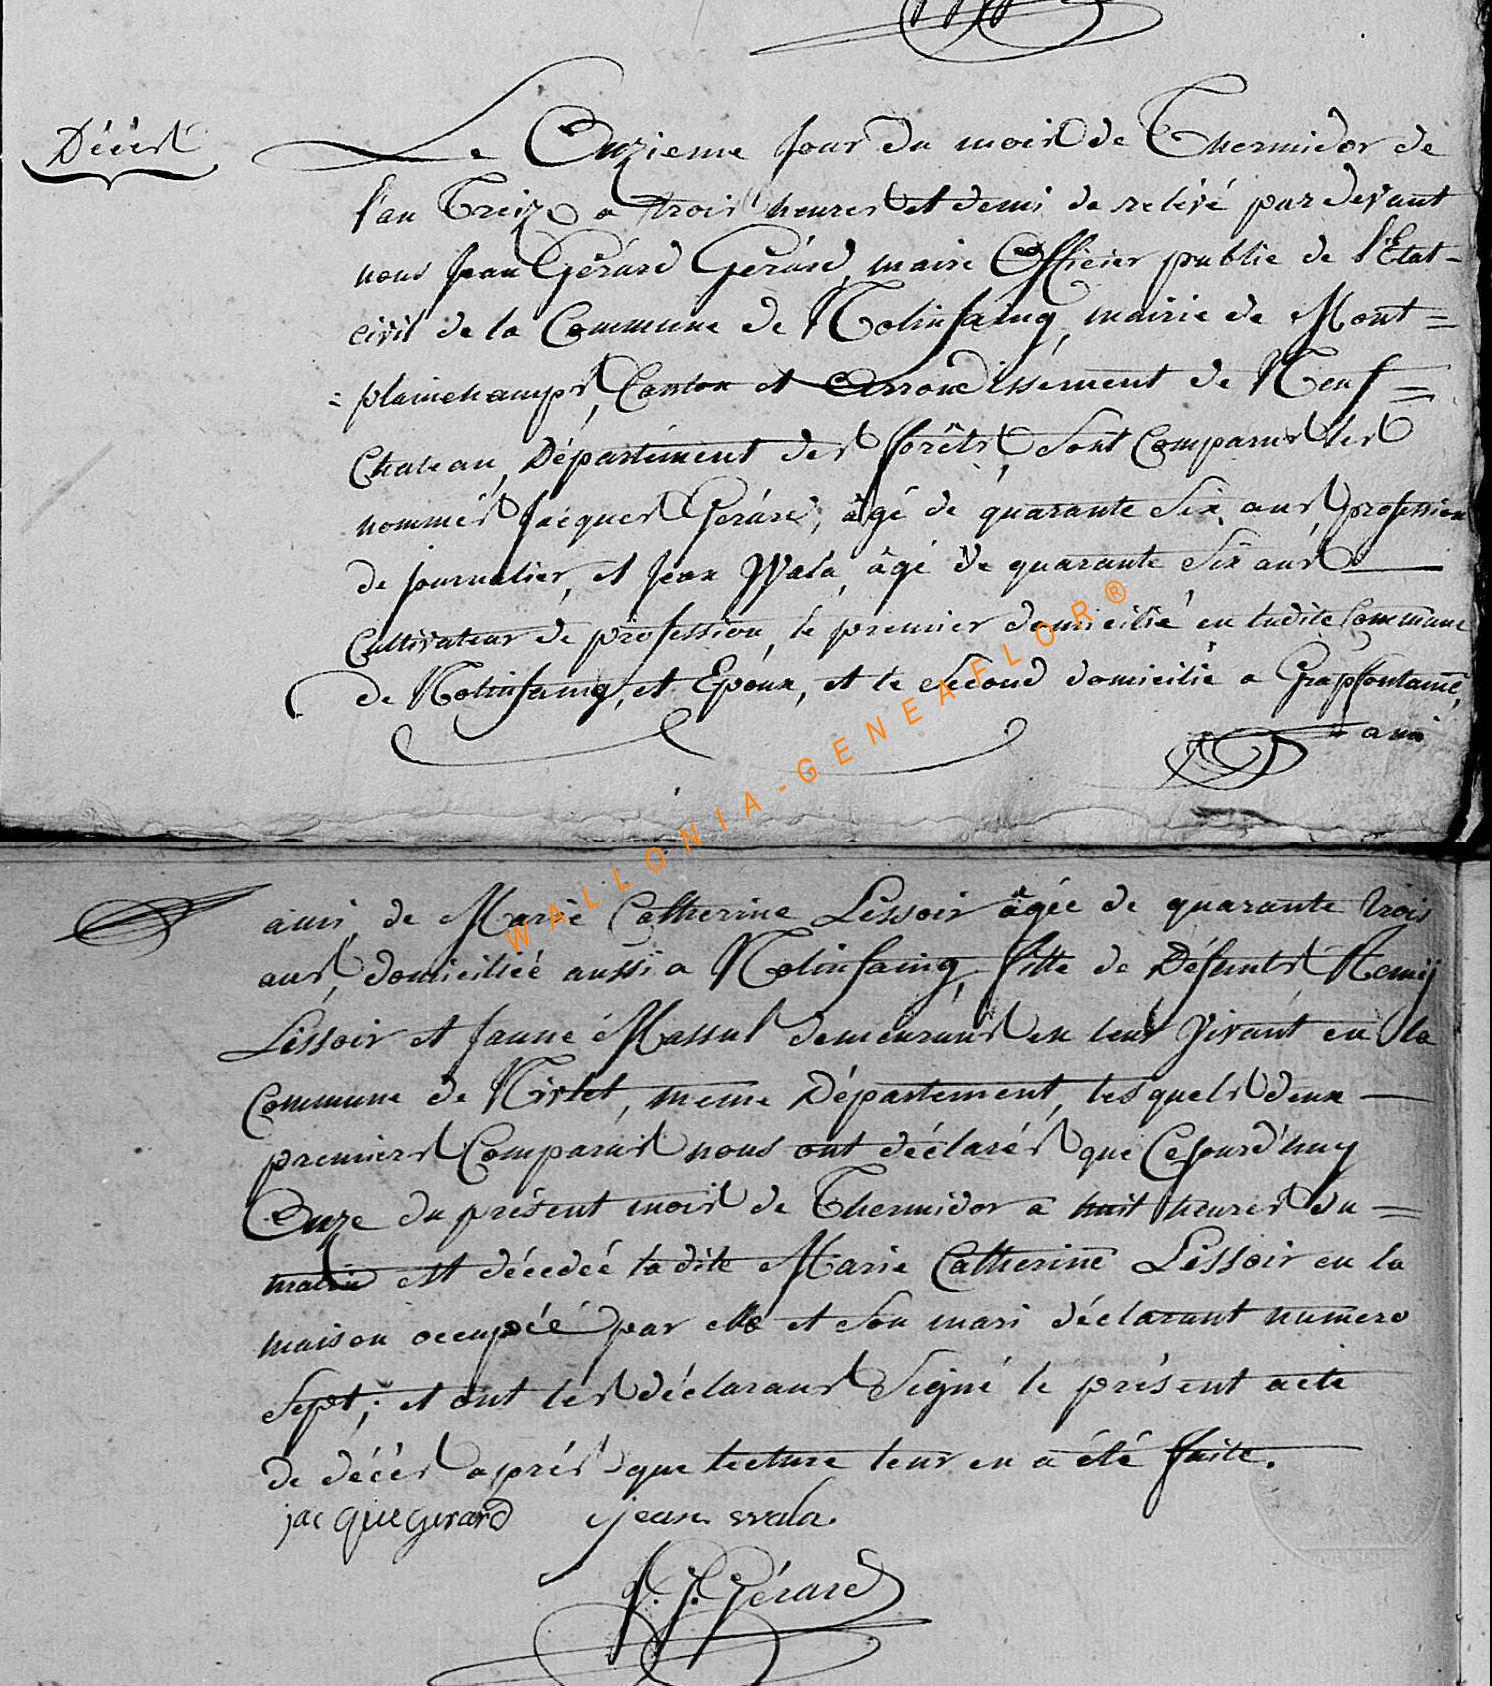 Décès
Le Onzieme jour du mois de Thermidor de
l'an Treize a trois heures et demi de relévé par devant
nous Jean Gérard Gérard, maire Officier public de l'Etat-
civil de la Commune de Nolinfaing, mairie de Mont=
=plainchamps, Canton et Arrondissement de Neuf=
Chateau, Département des forêts, Sont Comparus les
nommés Jacques Gérard, âgé de quarante Six ans, profession
de journalier, et Jean Wala, âgé de quarante Six ans
Cultivateur de profession, le premier domicilié en ladite Commune
de Nolinfaing, et Epoux, et le Second domicilié a Grapfontaine,
ami
ami de Marie Catherine Lessoir âgée de quarante trois
ans, domiciliée aussi a Nolinfaing, fille de Défunts Remÿ
Lessoir et Janne Massul demeurans en leur Vivant en la
Commune de Nivlet, meme Département, lesquels deux
premiers Comparus nous ont déclarés que Cejourd'huy
Onze du présent mois de Thermidor a huit heures du =
matin est décedée ladite Marie Catherine Lessoir en la
maison occupée par elle et Son mari déclarant numero
Sept; et ont les déclarans Signé le présent acte
de décès après que lecture leur en a été faite.
jacque gerard jean wala.
J. J. Gérard
WALLONIA-GENEAFLOR®